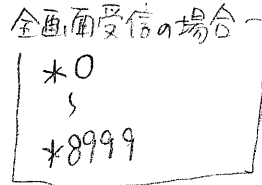 全画面受信の場合
*0
〜
*8999